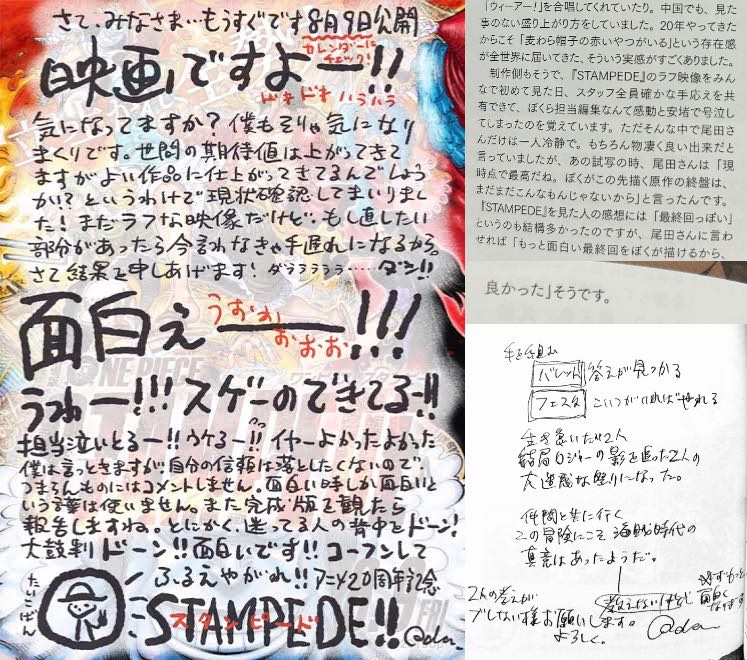 さて、みなさま…もうすぐです8月9日公開
カレンダーに
チェック!
映画ですよー!!
ドキドキハラハラ
気になってますか?僕もそりゃ気になり
まくりです。世間の期待値は上がってきて
ますがよい作品に仕上がってきてるんでしょう
かい?というわけで現状確認してまいりまし
た!まだラフな映像だけど、もし直したい
部分があったら今言わなきゃ手遅れになるから。
さて結果を申しあげます!ダララララララ……ダン!!
面白ぇ
うおおおおおお
ー!!!
うわー!!!スゲーのできてるー!!
担当泣いとるー!!ウケるー!!イヤーよかったよかった
僕は言っときますが、自分の信頼は落としたくないので、
つまらんものにはコメントしません。面白い時しか面白いと
いう言葉は使いません。また完成版を観たら
報告しますね。とにかく、迷ってる人の背中をドーン!
太鼓判ドーン!!面白いです!!コーフンして
ふるえやがれ!!アニメ20周年記念
たいこばん
スタンピード
STAMPEDE!!
「ウィーアー!」を合唱してくれていたり。中国でも、見た
事のない盛り上がり方をしていました。20年やってきた
からこそ「麦わら帽子の赤いやつがいる」という存在感
が全世界に届いてきた、そういう実感がすごくありました。
制作側もそうで、『STAMPEDE』のラフ映像をみん
なで初めて見た日、スタッフ全員確かな手応えを共
有できて、ぼくら担当編集なんて感動と安堵で号泣し
てしまったのを覚えています。ただそんな中で尾田さ
んだけは一人冷静で。もちろん物凄く良い出来だと
言っていましたが、あの試写の時、尾田さんは「現
時点で最高だね。ぼくがこの先描く原作の終盤は、
まだまだこんなもんじゃないから」と言ったんです。
『STAMPEDE』を見た人の感想には「最終回っぽい」
というのも結構多かったのですが、尾田さんに言わ
せれば「もっと面白い最終回をぼくが描けるから、
良かった」そうです。
手を組む
バレット 答えが見つかる
フェスタ こいつがいればやれる
生き急いだ2人
結局ロジャーの影を追った2人の
大迷惑な祭りになった。
仲間と共に行く
この冒険にこそ海賊時代の
真意はあったようだ。
教えないけど
2人の考えが
ブレない様お願いします。
よろしく。